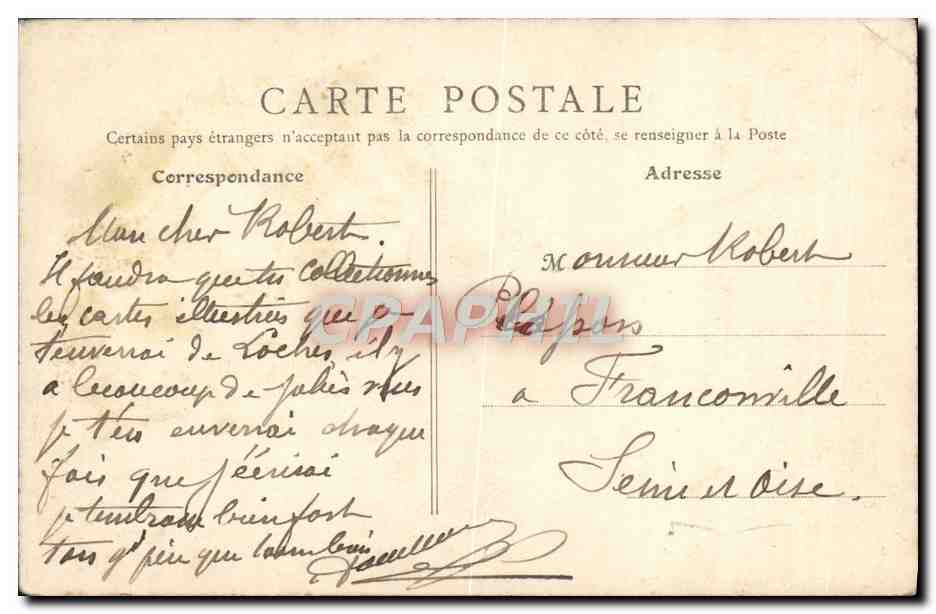 CARTE POSTALE
Certains pays étrangers n'acceptant pas la correspondance de ce côté, se renseigner à la Poste
Correspondance
Mon cher Robert.
Il faudra que tu collectionnes
les cartes illustrées que je
t'enverrai de Loches, il y
a beaucoup de jolies vues
je t'en enverrai chaque
fois que j'écrirai
je t'embrasse bien fort
ton gd père que
Adresse
Monsieur Robert
a Franconville
Seine et Oise.
CPAPHIL